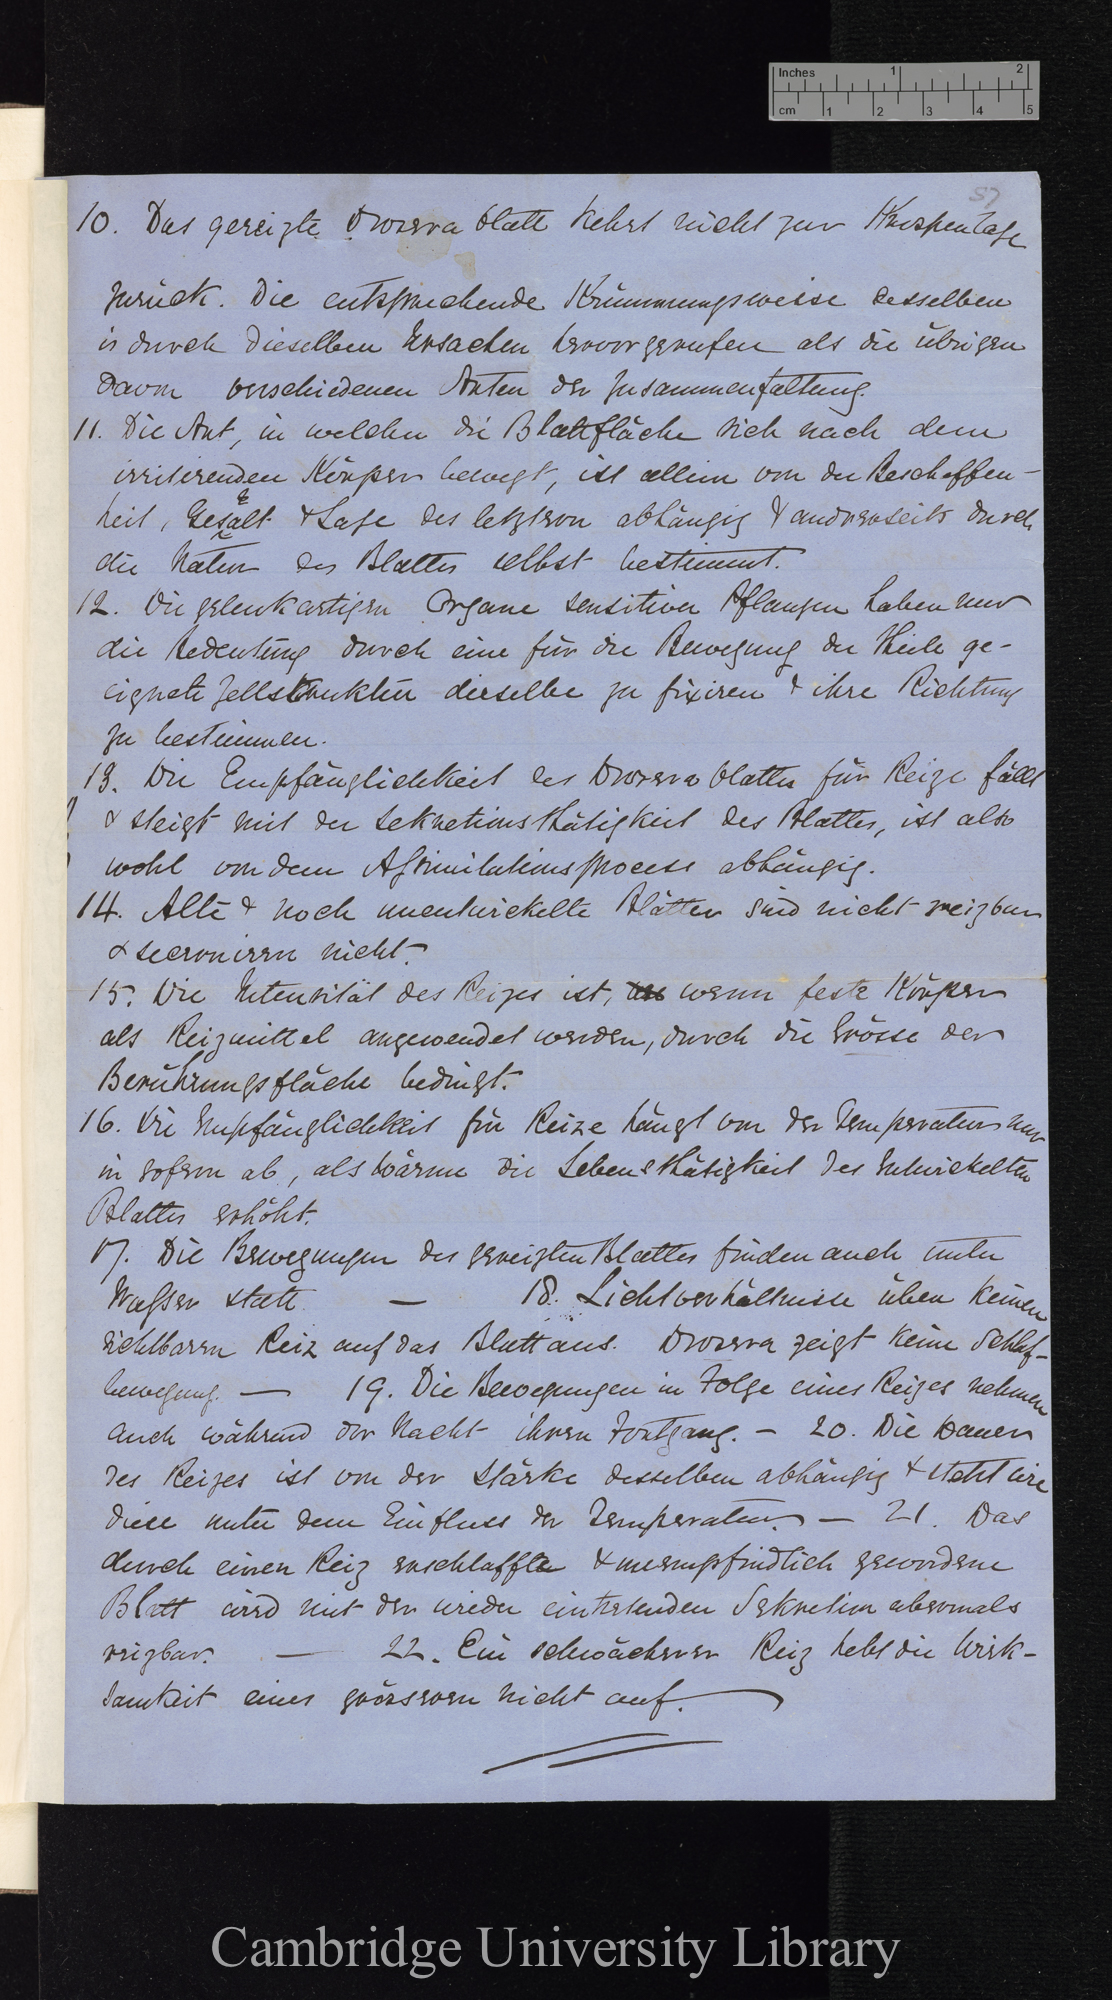 Inches 1 2
cm 1 2 3 4 5
57
10. Das gereizte Drosera blatt kehrt nicht zur Knospenlage
zurück. Die entsprechende Krümmungsweise desselben
is durch dieselben Ursachen hervorgerufen als die übrigen
davon verschiedenen Arten der Zusammenfaltung.
11. Die Art, in welcher die Blattfläche sich nach dem
irritirenden Körper bewegt, ist allein von der Beschaffen-
heit, Gestalt & Lage des letztern abhängig & anderseits durch
die Natur des Blattes selbst bestimmt.
12. Die gelenkartigen Organe sensitiver Pflanzen haben nur
die Bedeutung durch eine für die Bewegung der Theile ge-
eignete Zellstruktur dieselbe zu fixiren & ihre Richtung
zu bestimmen.
13. Die Empfänglichkeit des Drosera blattes für Reize fällt
& steigt mit der Sekretionsthätigkeit des Blattes, ist also
wohl von dem Assimilationsprocess abhängig.
14. Alte & noch unentwickelte Blätter sind nicht reizbar
& secerniren nicht.
15. Die Intensität des Reizes ist, wenn feste Körper
als Reizmittel angewendet werden, durch die Grösse der
Berührungsfläche bedingt.
16. Die Empfänglichkeit für Reize hängt von der Temperatur nur
in sofern ab, als Wärme die Lebensthätigkeit des entwickelten
Blattes erhöht.
17. Die Bewegungen des gereizten Blattes finden auch unter
Wasser statt — 18. Lichtverhältnisse üben keinen
sichtbaren Reiz auf das Blatt aus. Drosera zeigt keine Schlaf-
bewegung. — 19. Die Bewegungen in Folge eines Reizes nehmen
auch während der Nacht ihren Fortgang. — 20. Die Dauer
des Reizes ist von der Stärke desselben abhängig & steht wie
diese unter dem Einfluss der Temperatur. — 21. Das
durch einen Reiz erschlaffte & unempfindlich gewordene
Blatt wird mit der wieder eintretenden Sekretion abermals
reizbar. — 22. Ein schwächerer Reiz hebt die Wirk-
samkeit eines grösseren nicht auf.
Cambridge University Library